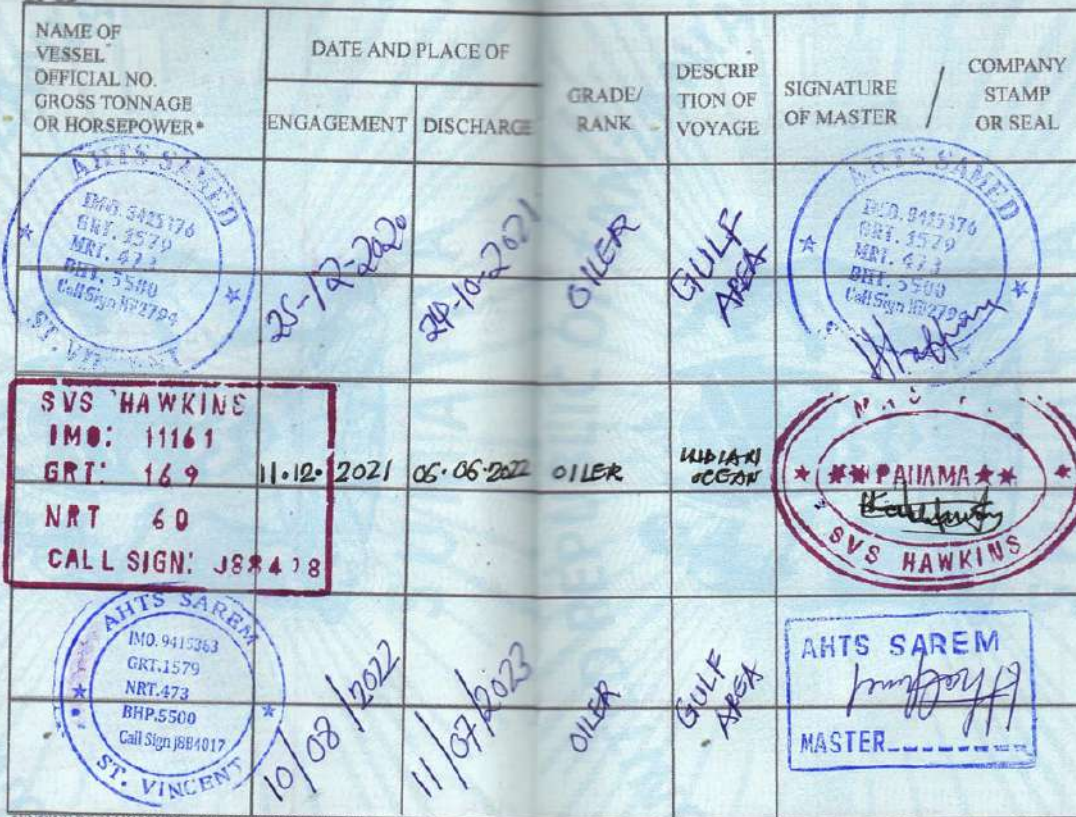 NAME OF
VESSEL
OFFICIAL NO.
GROSS TONNAGE
OR HORSEPOWER*
DATE AND PLACE OF
ENGAGEMENT
DISCHARGE
GRADE/
RANK
DESCRIP
TION OF
VOYAGE
SIGNATURE
OF MASTER /
COMPANY
STAMP
OR SEAL
AHTS SAMED
IMO. 9415376
GRT. 1579
NRT. 473
5500
Call Sign
ST.
25-12-2020
24-10-2021
OILER
GULF
AREA
AHTS SAMED
IMO. 9415376
GRT. 1579
NRT. 473
5500
Call Sign
SVS HAWKINS
IMO: 11161
GRT: 169
NRT 60
CALL SIGN:
11.12.2021
05.06.2022
OILER
INDIAN
OCEAN
PANAMA
SVS HAWKINS
AHTS SAREM
IMO. 9415363
GRT.1579
NRT.473
BHP.5500
Call Sign J8B4017
ST. VINCENT
10/08/2022
11/07/2023
OILER
GULF
AREA
AHTS SAREM
MASTER